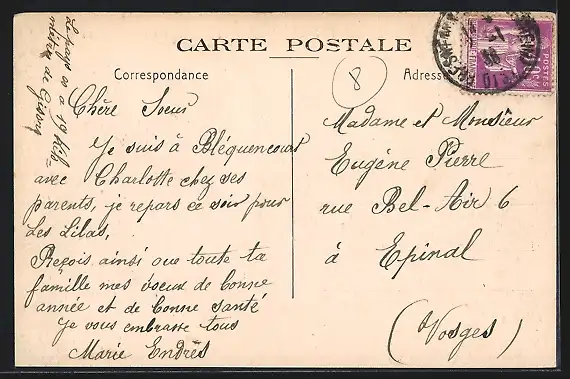 CARTE POSTALE
Correspondance
Adresse
8
POSTES
Chère Soeur
Je suis à Bléquencourt
avec Charlotte chez ses
parents, je repars ce soir pour
Les Lilas,
Reçois ainsi que toute ta
famille mes voeux de bonne
année et de bonne santé
Je vous embrasse tous
Marie Endrès
Le pays est à 19 kilo
mètres de Gisors
Madame et Monsieur
Eugène Pierre
rue Bel-Air 6
à Epinal
(Vosges)